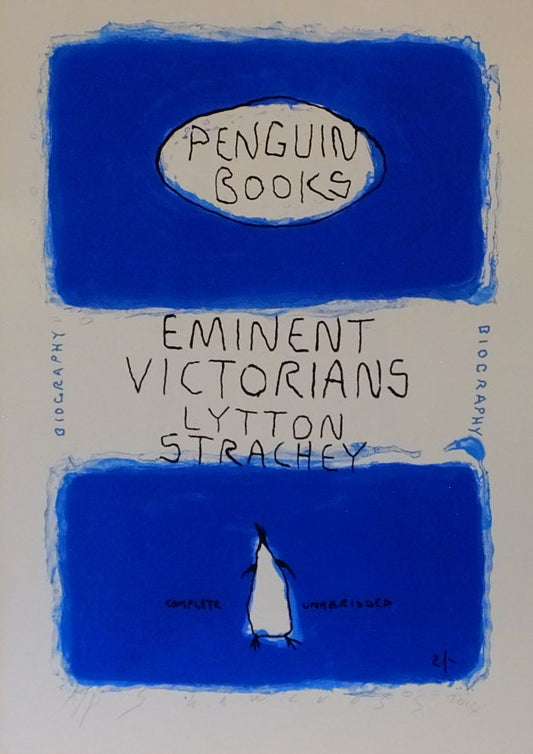 PENGUIN
BOOKS
BIOGRAPHY
EMINENT
VICTORIANS
LYTTON
STRACHEY
BIOGRAPHY
COMPLETE UNABRIDGED
2/-